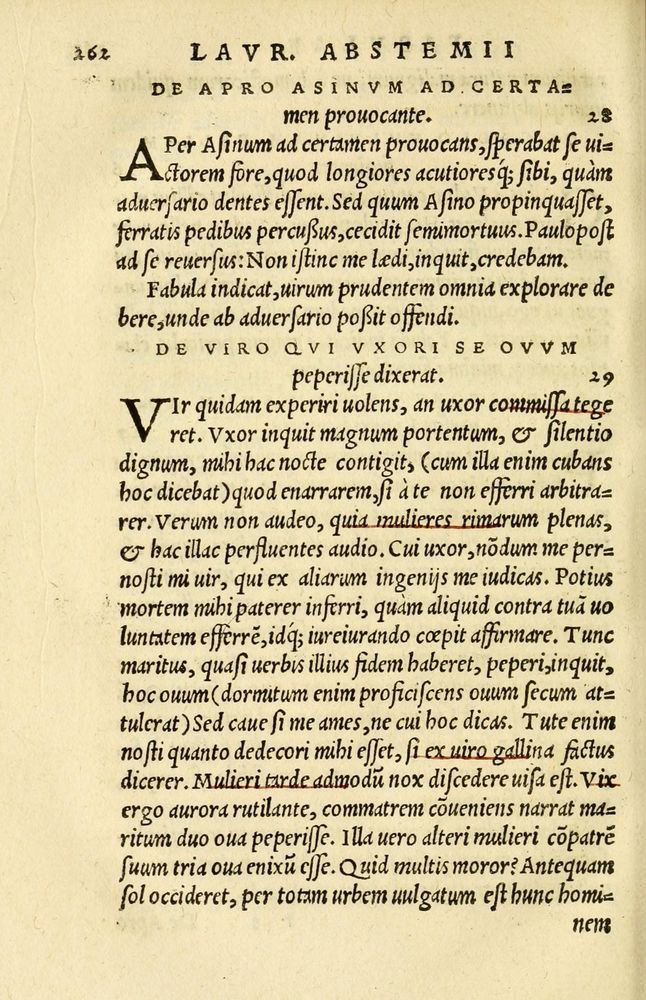 262 LAVR. ABSTEMII
DE APRO ASINVM AD CERTA=
men prouocante. 28
APer Asinum ad certamen prouocans, sperabat se ui=
ctorem fore, quod longiores acutioresq́; sibi, quàm
aduersario dentes essent. Sed quum Asino propinquasset,
ferratis pedibus percußus, cecidit semimortuus. Paulopost
ad se reuersus: Non istinc me lædi, inquit, credebam.
Fabula indicat, uirum prudentem omnia explorare de
bere, unde ab aduersario poßit offendi.
DE VIRO QVI VXORI SE OVVM
peperisse dixerat. 29
VIr quidam experiri uolens, an uxor commissa tege
ret. Vxor inquit magnum portentum, & silentio
dignum, mihi hac nocte contigit, (cum illa enim cubans
hoc dicebat) quod enarrarem, si à te non efferri arbitra=
rer. Verum non audeo, quia mulieres rimarum plenas,
& hac illac perfluentes audio. Cui uxor, nōdum me per=
nosti mi uir, qui ex aliarum ingenijs me iudicas. Potius
mortem mihi paterer inferri, quàm aliquid contra tuā uo
luntatem efferrē, idq́; iureiurando cœpit affirmare. Tunc
maritus, quasi uerbis illius fidem haberet, peperi, inquit,
hoc ouum (dormitum enim proficiscens ouum secum at=
tulerat) Sed caue si me ames, ne cui hoc dicas. Tute enim
nosti quanto dedecori mihi esset, si ex uiro gallina factus
dicerer. Mulieri tarde admodū nox discedere uisa est. Vix
ergo aurora rutilante, commatrem cōueniens narrat ma=
ritum duo oua peperisse. Illa uero alteri mulieri cōpatrē
suum tria oua enixū esse. Quid multis moror? Antequam
sol occideret, per totam urbem uulgatum est hunc homi=
nem